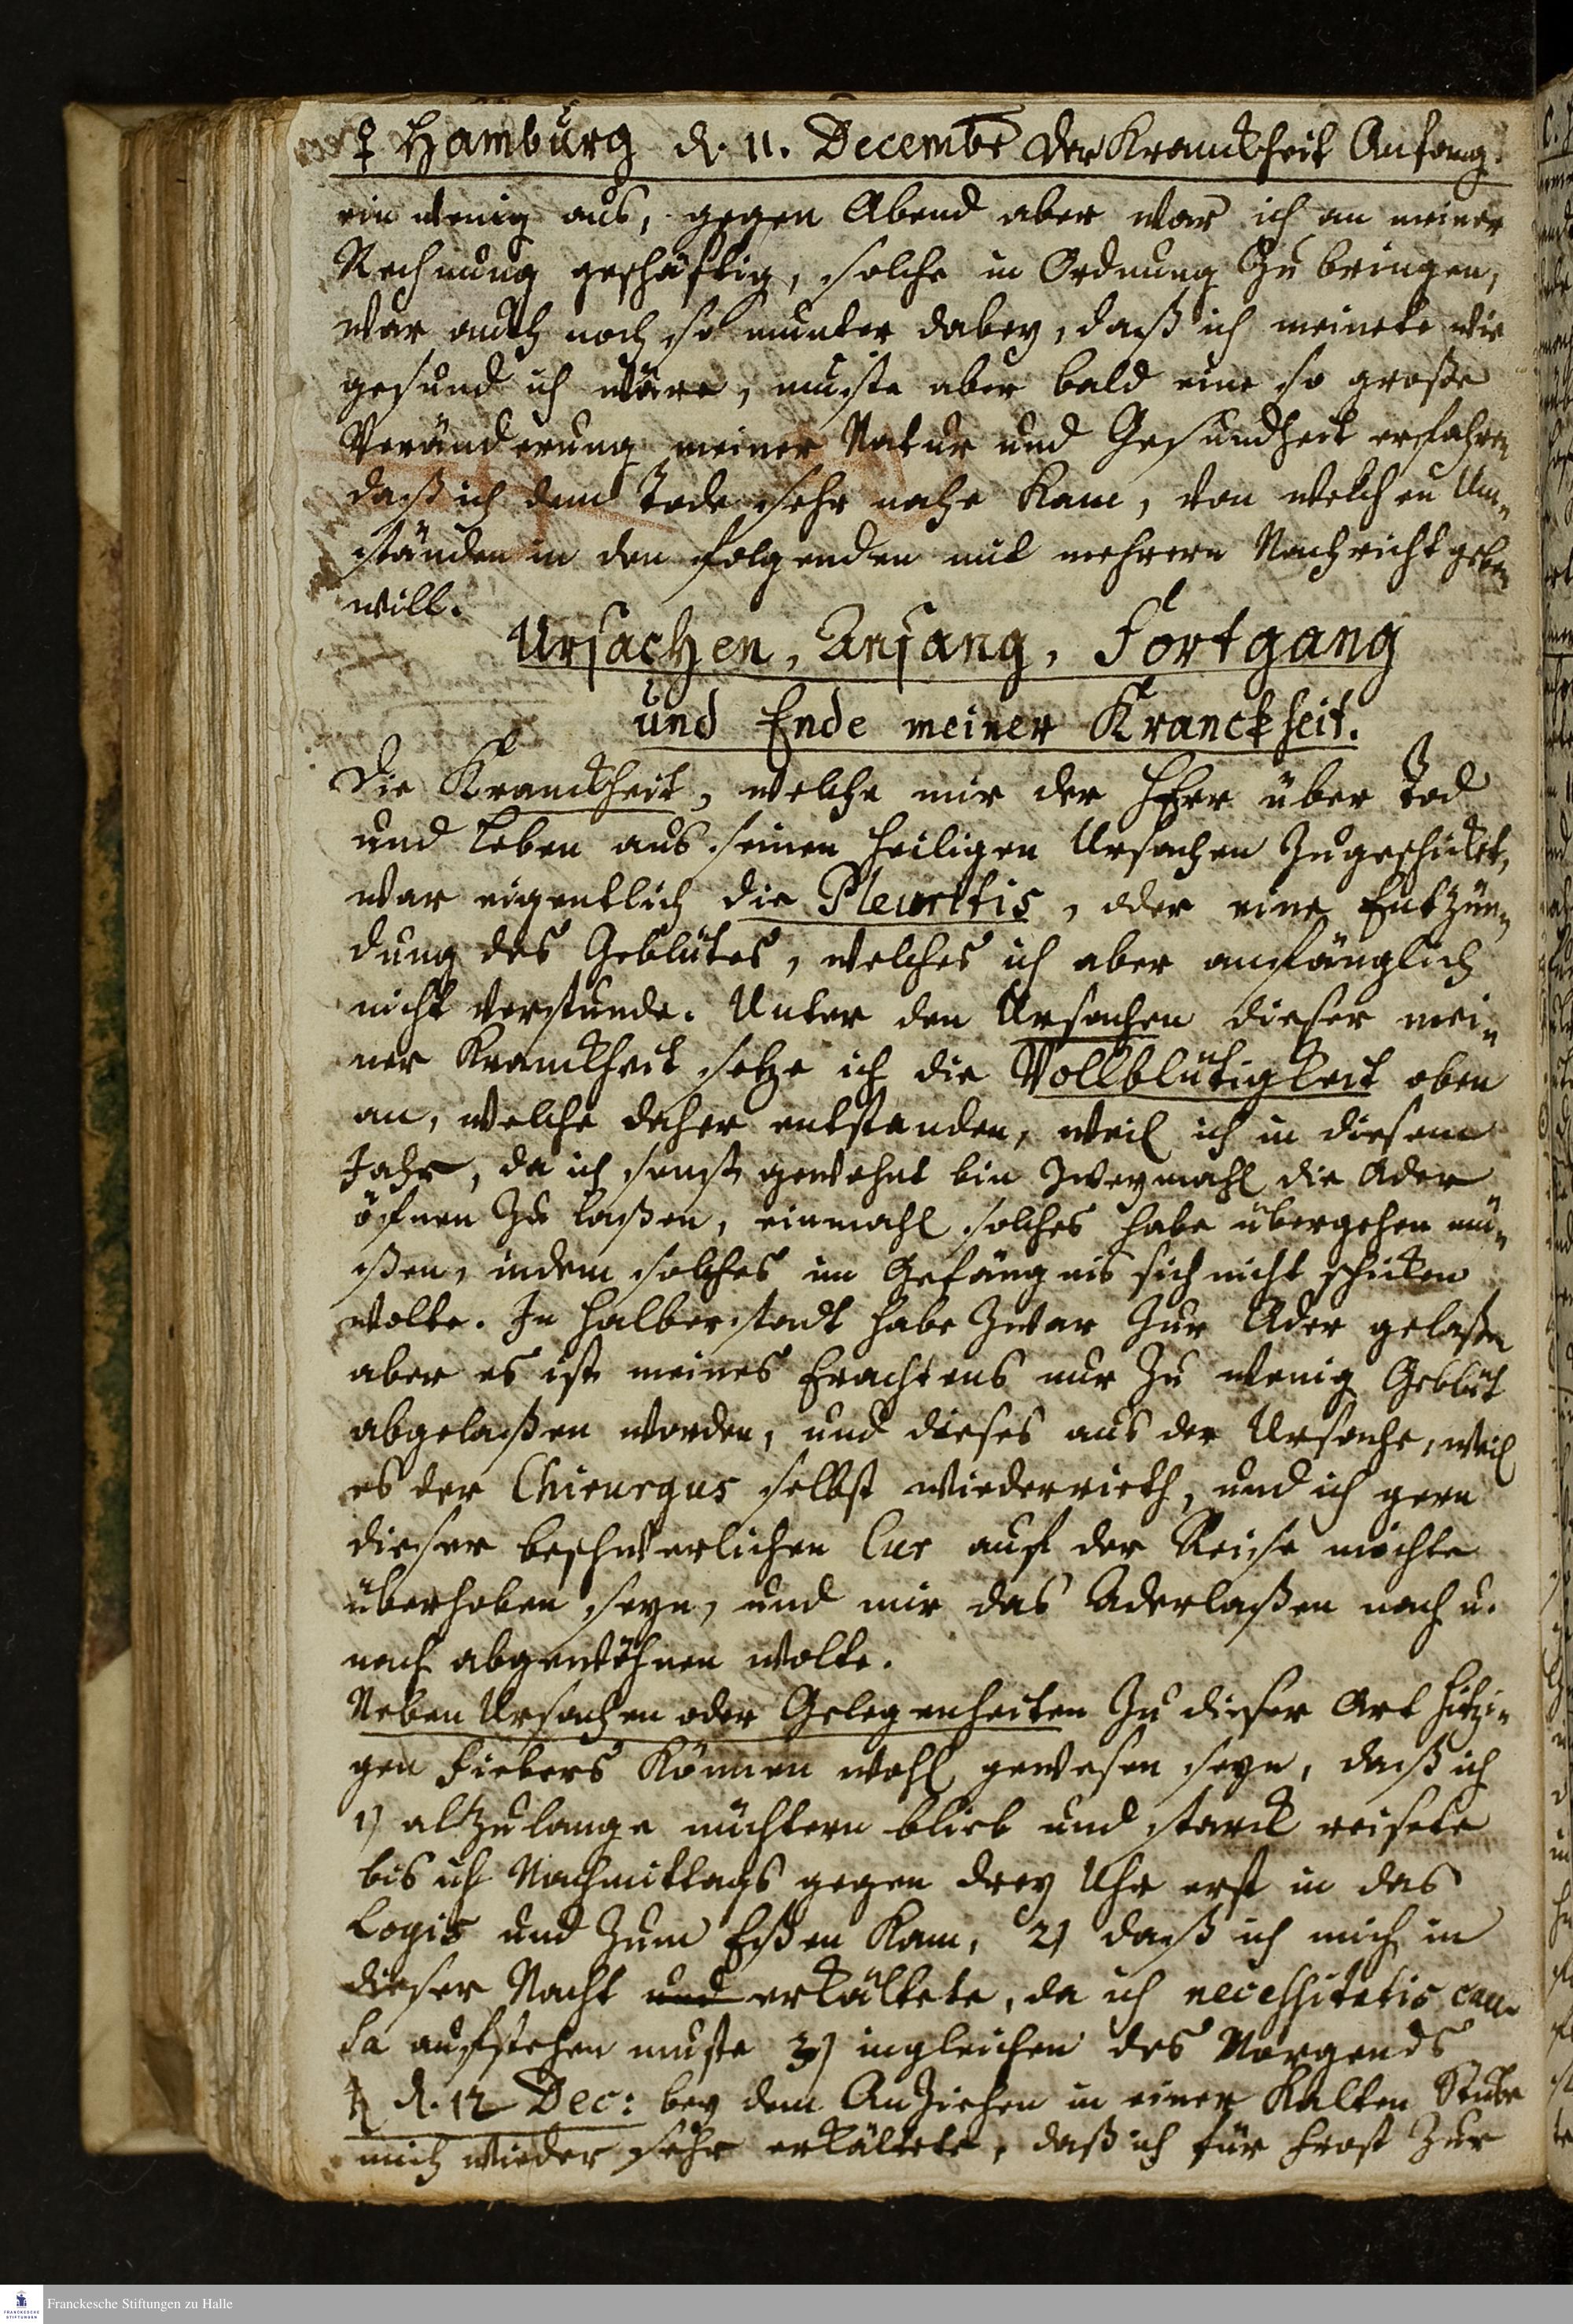 ♀ Hamburg d. 11. Decembr der Kranckheit Anfang.
ein wenig aus, gegen Abend aber war ich an meiner
Rechnung geschäftig, solche in Ordnung zu bringen,
war auch noch so munter dabey, daß ich meinete wie
gesund ich wäre, muste aber bald eine so große
Veränderung meiner Natur und Gesundheit erfahren
daß ich dem Tode sehr nahe kam, von welchen Um-
ständen in den folgenden mit mehrern Nachricht geben
will.
Ursachen, Anfang, Fortgang
und Ende meiner Kranckheit.
Die Kranckheit, welche mir der HErr über Tod
und Leben aus seinen heiligen Ursachen zugeschickt,
war eigentlich die Pleuritis, oder eine Entzün-
dung des Geblütes, welches ich aber anfänglich
nicht verstunde. Unter den Ursachen dieser mei-
ner Kranckheit setze ich die Vollblütigkeit oben
an, welche daher entstanden, weil ich in diesem
Jahr, da ich sonst gewohnt bin zweymahl die Ader
öfnen zu laßen, einmahl solches habe übergehen mü-
ßen, indem solches im Gefängnis sich nicht schicken
wolte. In Halberstadt habe zwar zur Ader gelaßen
aber es ist meines Erachtens nur zu wenig Geblüt
abgelaßen worden, und dieses aus der Ursache, weil
es der Chirurgus selbst wiederrieth, und ich gern
dieser beschwerlichen Cur auf der Reise möchte
überhoben seyn, und mir das Aderlaßen nach u.
nach abgewöhnen wolte.
Neben Ursachen oder Gelegenheiten zu dieser Art hitzi-
gen Fiebers können wohl gewesen seyn, daß ich
1) allzulange nüchtern blieb und starck reisete
bis ich Nachmittags gegen drey Uhr erst in das
Logis und zum Eßen kam, 2) daß ich mich in
dieser Nacht und erkältete, da ich necessitatis cau-
sa aufstehen muste 3) ingleichen des Morgends
♄ d. 12 Dec: bey dem Anziehen in einer kalten Stube
mich wieder sehr erkältete, daß ich für Frost zur
Franckesche Stiftungen zu Halle